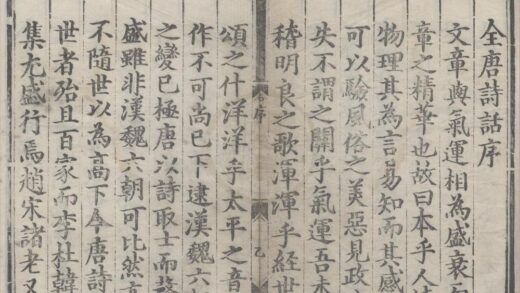 全唐詩話序
文章與氣運相為盛衰
章之精華也故曰本乎人
物理其為言易知而其感
可以驗風俗之美惡見政
失不謂之關乎氣運吾未
稽明良之歌渾渾乎經世
序
頌之什洋洋乎太平之音
作不可尚已下逮漢魏六
之變已極唐以詩取士而
盛雖非漢魏六朝可比然
不隨世以為高下今唐詩
世者殆且百家而李杜韓
集尤盛行焉趙宋諸老又